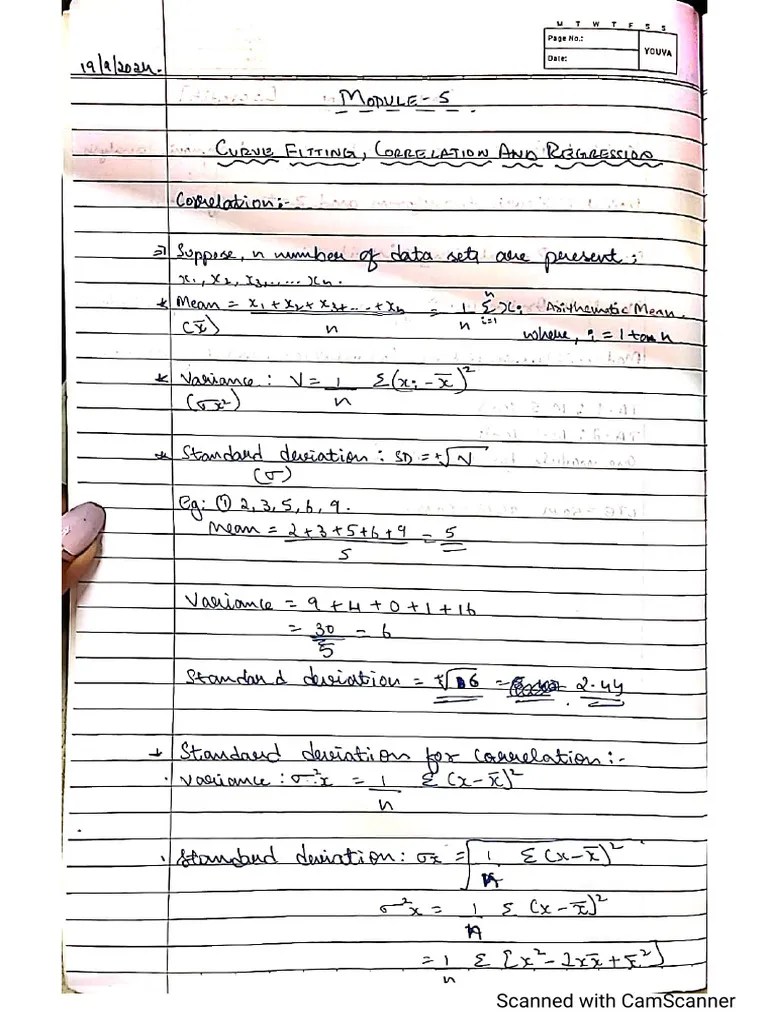 M T W T F S S
Page No.:
Date:
YOUVA
19/9/2024.
MODULE-5
CURVE FITTING, CORRELATION AND REGRESSION
Correlation:-
⇒ Suppose, n number of data sets are present;
x₁, x₂, x₃,.... xₙ.
* Mean = x₁+x₂+x₃+...+xₙ / n = 1/n Σ(i=1 to n) xᵢ Arithematic Mean.
(x̄) where, i = 1 to n
* Variance: V = 1/n Σ(xᵢ - x̄)²
(σx²)
* Standard deviation: SD = +√V
(σ)
Eg: ① 2, 3, 5, 6, 9.
Mean = 2+3+5+6+9 / 5 = 5
Variance = 9+4+0+1+16
= 30/5 = 6
Standard deviation = +√6 = 2.44
* Standard deviation for correlation:-
. Variance: σ²x = 1/n Σ(x-x̄)²
. Standard deviation: σx = √1/n Σ(x-x̄)²
σ²x = 1/n Σ(x-x̄)²
= 1/n Σ[x² - 2xx̄ + x̄²]
Scanned with CamScanner